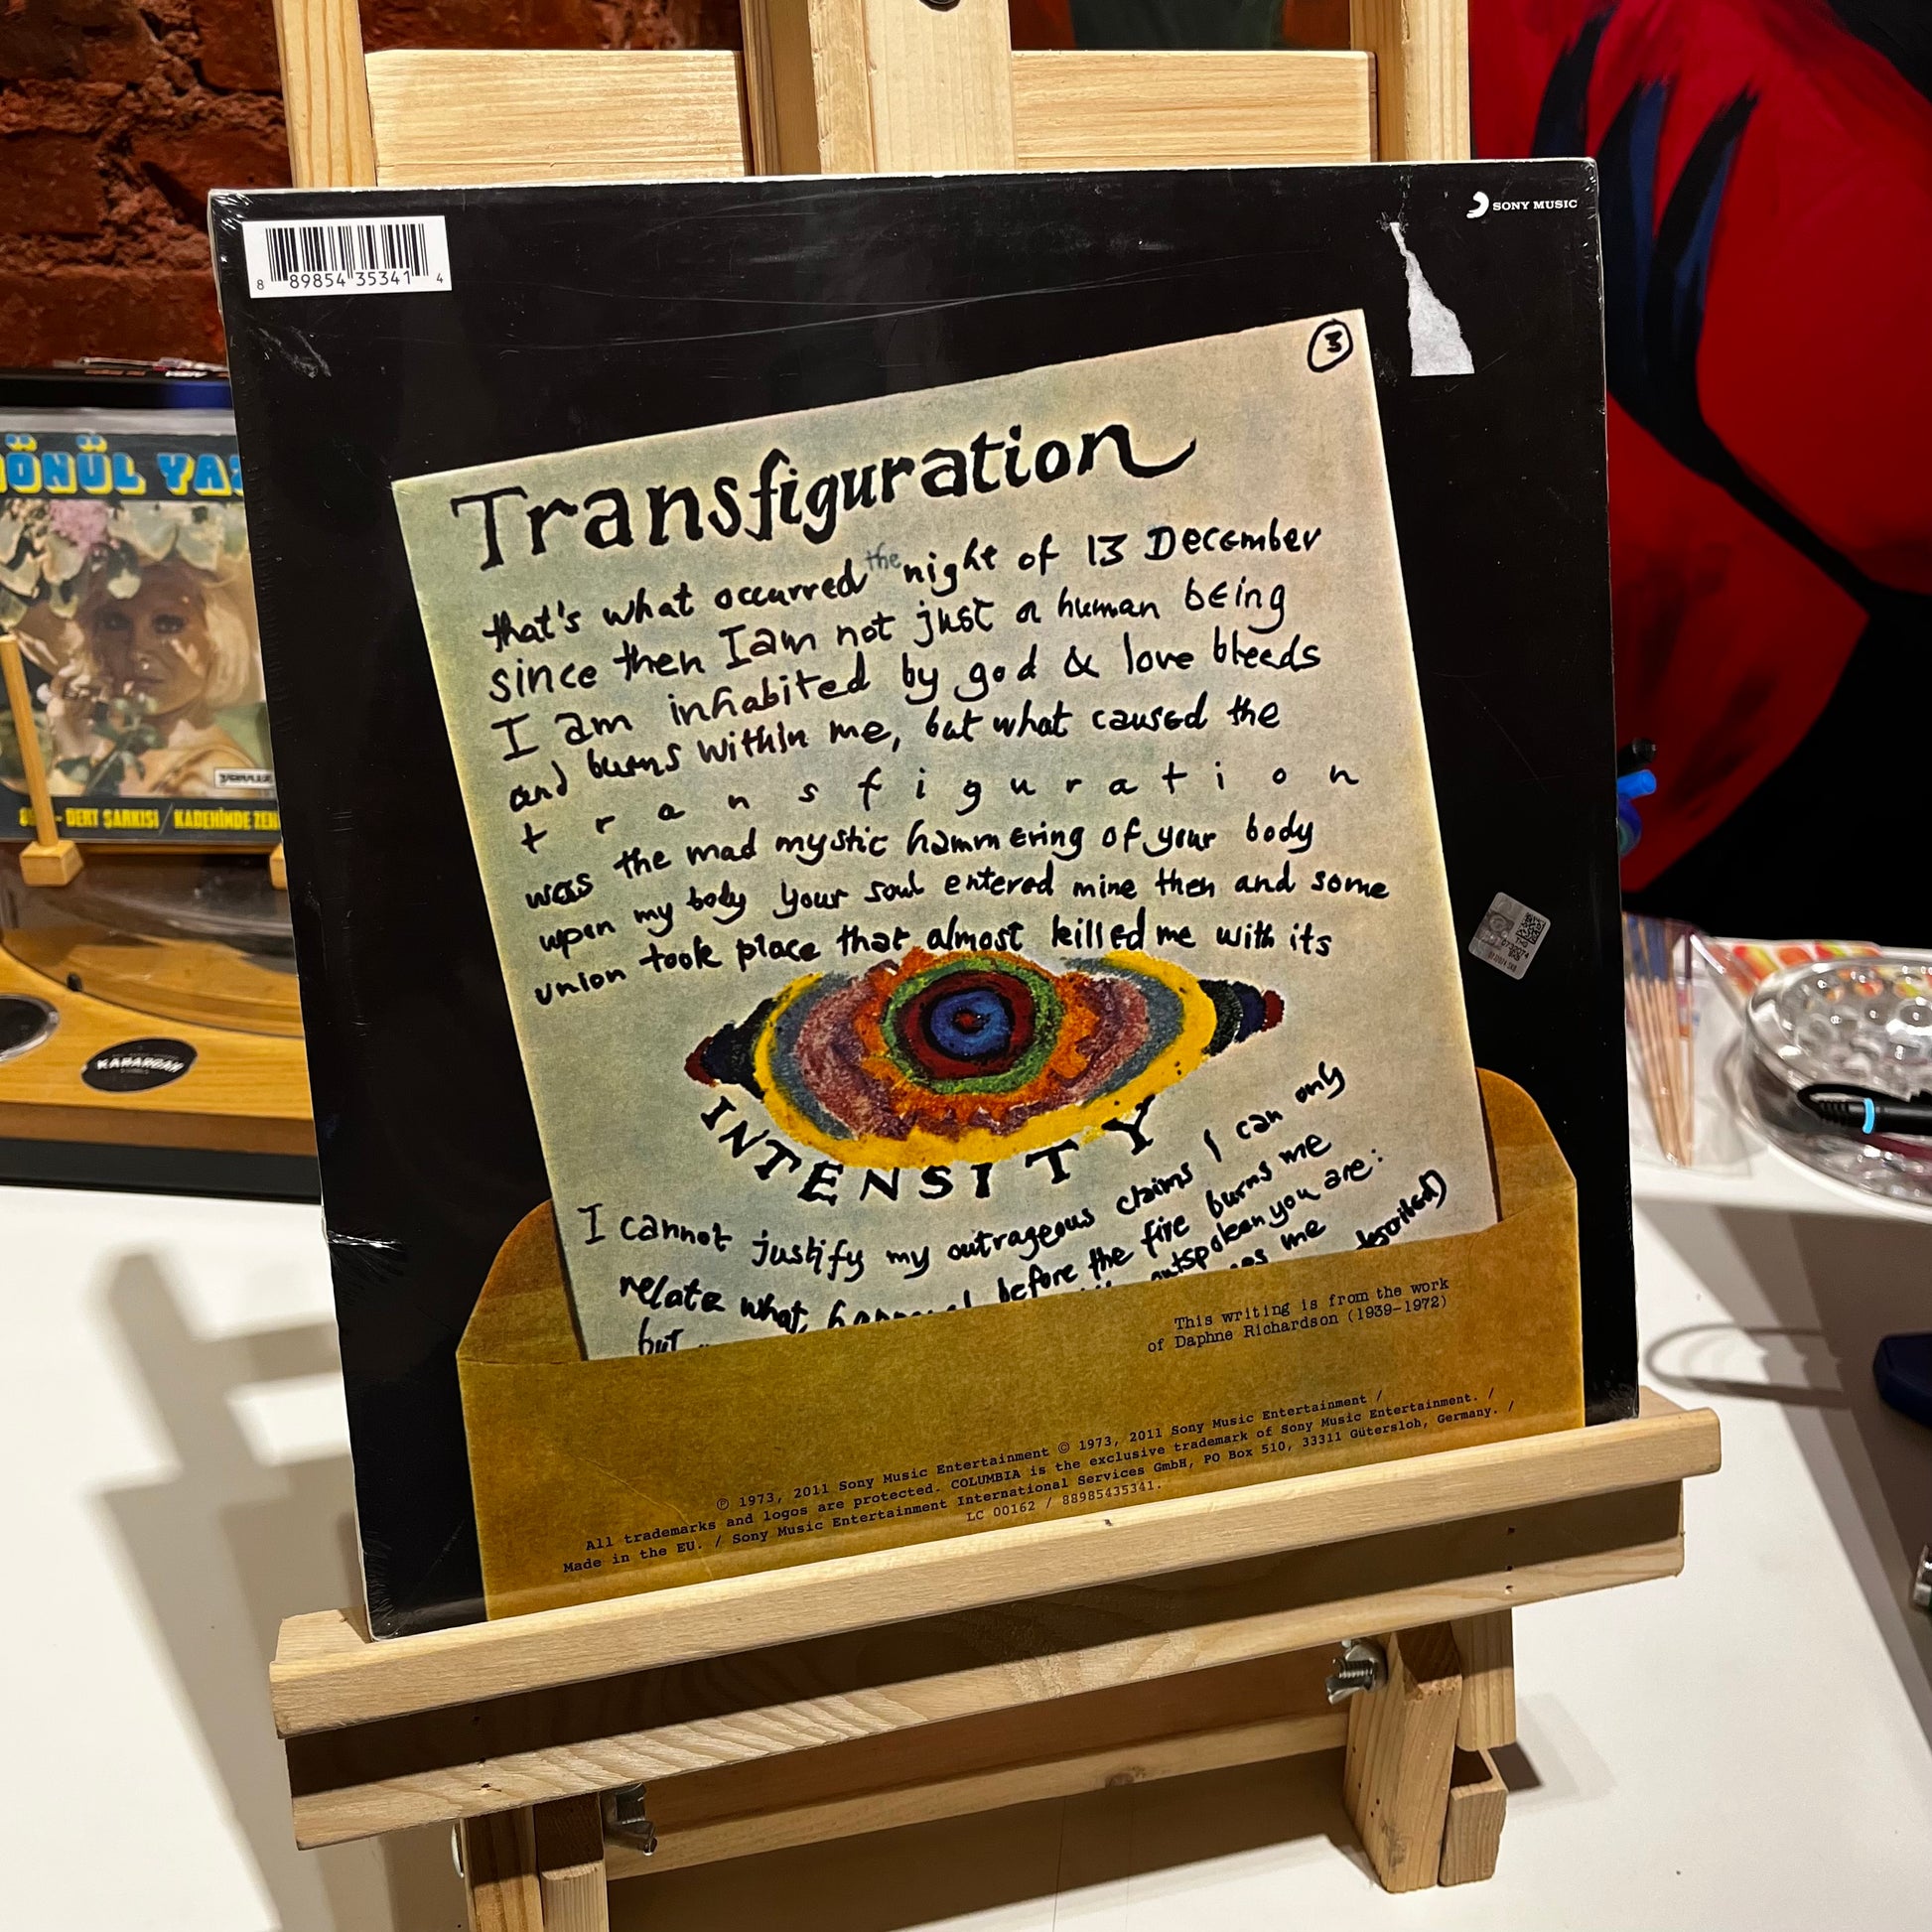 8 89854 35341 4
SONY MUSIC
3
Transfiguration
that's what occurred the night of 13 December
since then I am not just a human being
I am inhabited by god & love bleeds
and burns within me, but what caused the
t r a n s f i g u r a t i o n
was the mad mystic hammering of your body
upon my body your soul entered mine then and some
union took place that almost killed me with its
INTENSITY
I cannot justify my outrageous claims I can only
relate what before the fire burns me
but outspoken you are:
me described)
This writing is from the work
of Daphne Richardson (1939-1972)
℗ 1973, 2011 Sony Music Entertainment © 1973, 2011 Sony Music Entertainment /
All trademarks and logos are protected. COLUMBIA is the exclusive trademark of Sony Music Entertainment. /
Made in the EU. / Sony Music Entertainment International Services GmbH, PO Box 510, 33311 Gütersloh, Germany. /
LC 00162 / 88985435341.
ÖNÜL YAZ
DERT ŞARKISI / KADEHİNDE ZEH